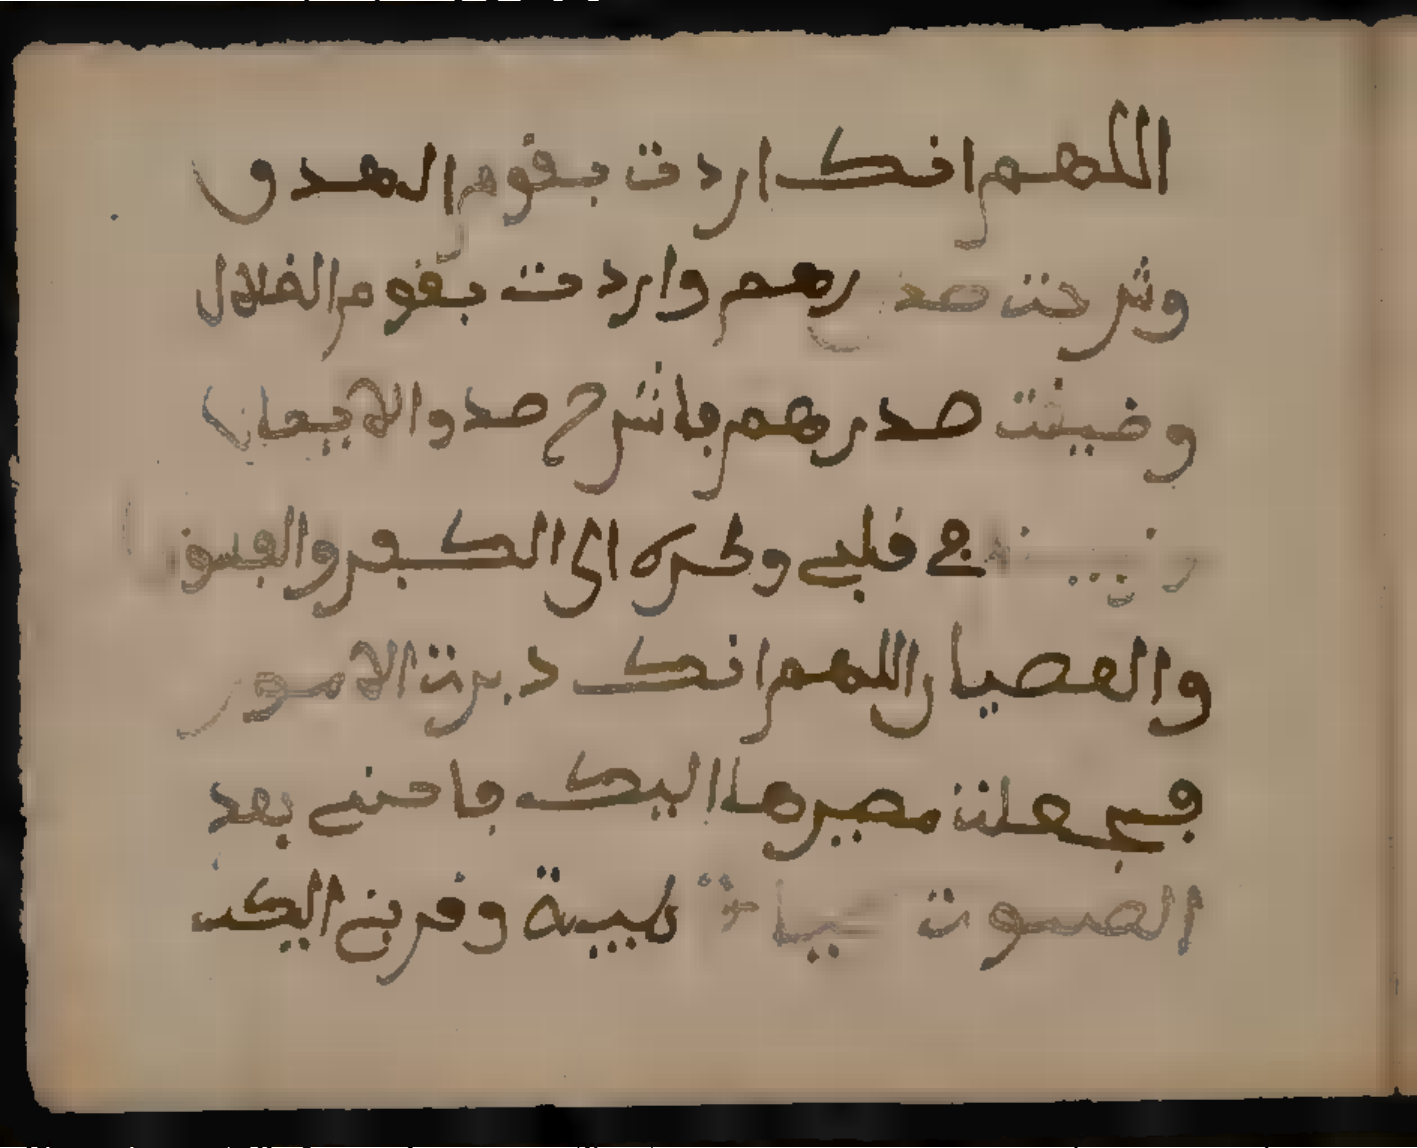 اللهم انك اردت بقوم الهدى
وشرحت صدرهم واردت بقوم الضلال
وضيقت صدرهم فاشرح صدر الايمان
في قلبي وكره الي الكفر والفسوق
والعصيان اللهم انك دبرت الامور
فجعلت مصيرها اليك فاحيني بعد
الموت حياة طيبة وقربني اليك